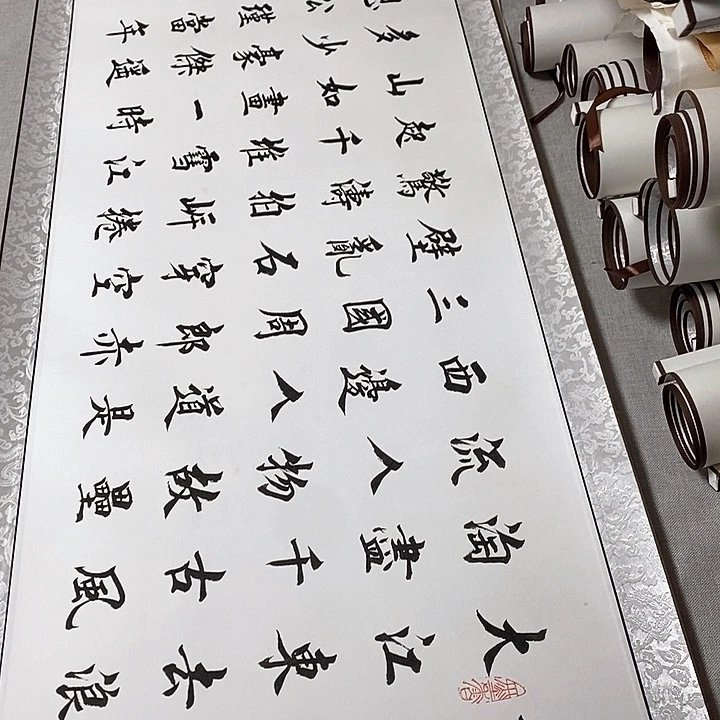 大江東去浪
淘盡千古風
流人物故壘
西邊人道是
三國周郎赤
壁亂石穿空
驚濤拍岸捲
起千堆雪江
山如畫一時
多少豪傑遙
公瑾當年